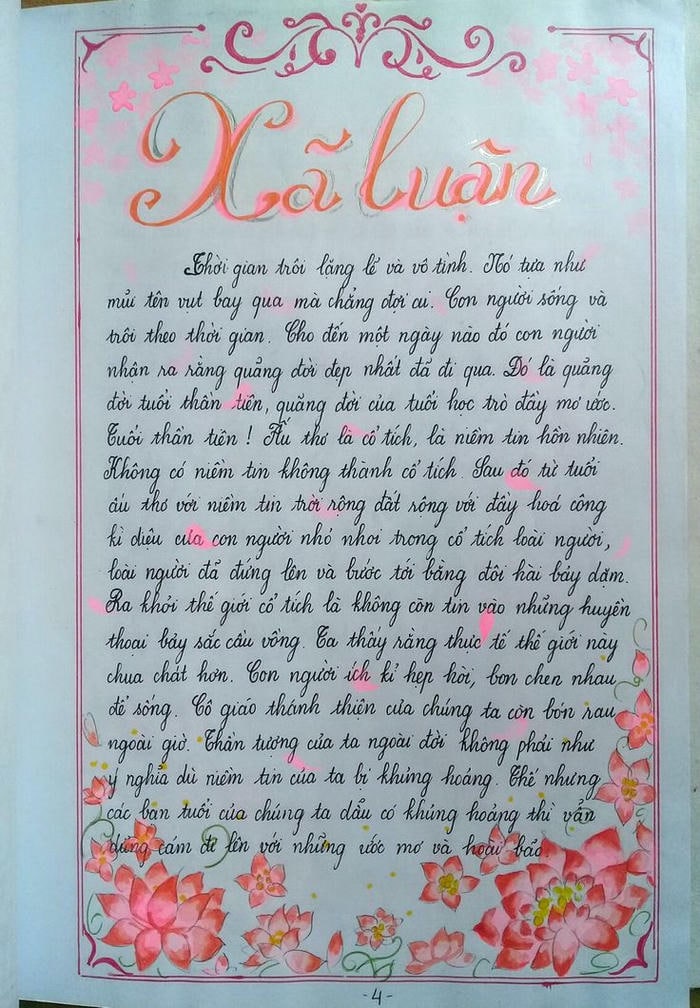 Xã luận
Thời gian trôi lặng lẽ và vô tình. Nó tựa như
mũi tên vụt bay qua mà chẳng đợi ai. Con người sống và
trôi theo thời gian. Cho đến một ngày nào đó con người
nhận ra rằng quãng đời đẹp nhất đã đi qua. Đó là quãng
đời tuổi thần tiên, quãng đời của tuổi học trò đầy mơ ước.
Tuổi thần tiên ! Ấu thơ là cổ tích, là niềm tin hồn nhiên.
Không có niềm tin không thành cổ tích. Sau đó từ tuổi
ấu thơ với niềm tin trời rộng đất rộng với đầy hoá công
kì diệu của con người nhỏ nhoi trong cổ tích loài người,
loài người đã đứng lên và bước tới bằng đôi hài bảy dặm.
Ra khỏi thế giới cổ tích là không còn tin vào những huyền
thoại bảy sắc cầu vồng. Ta thấy rằng thực tế thế giới này
chua chát hơn. Con người ích kỉ hẹp hòi, bon chen nhau
để sống. Cô giáo thánh thiện của chúng ta còn bón rau
ngoài giờ. Thần tượng của ta ngoài đời không phải như
ý nghĩa dù niềm tin của ta bị khủng hoảng. Thế nhưng
các bạn tuổi của chúng ta dẫu có khủng hoảng thì vẫn
dũng cảm đi lên với những ước mơ và hoài bão.
-4-